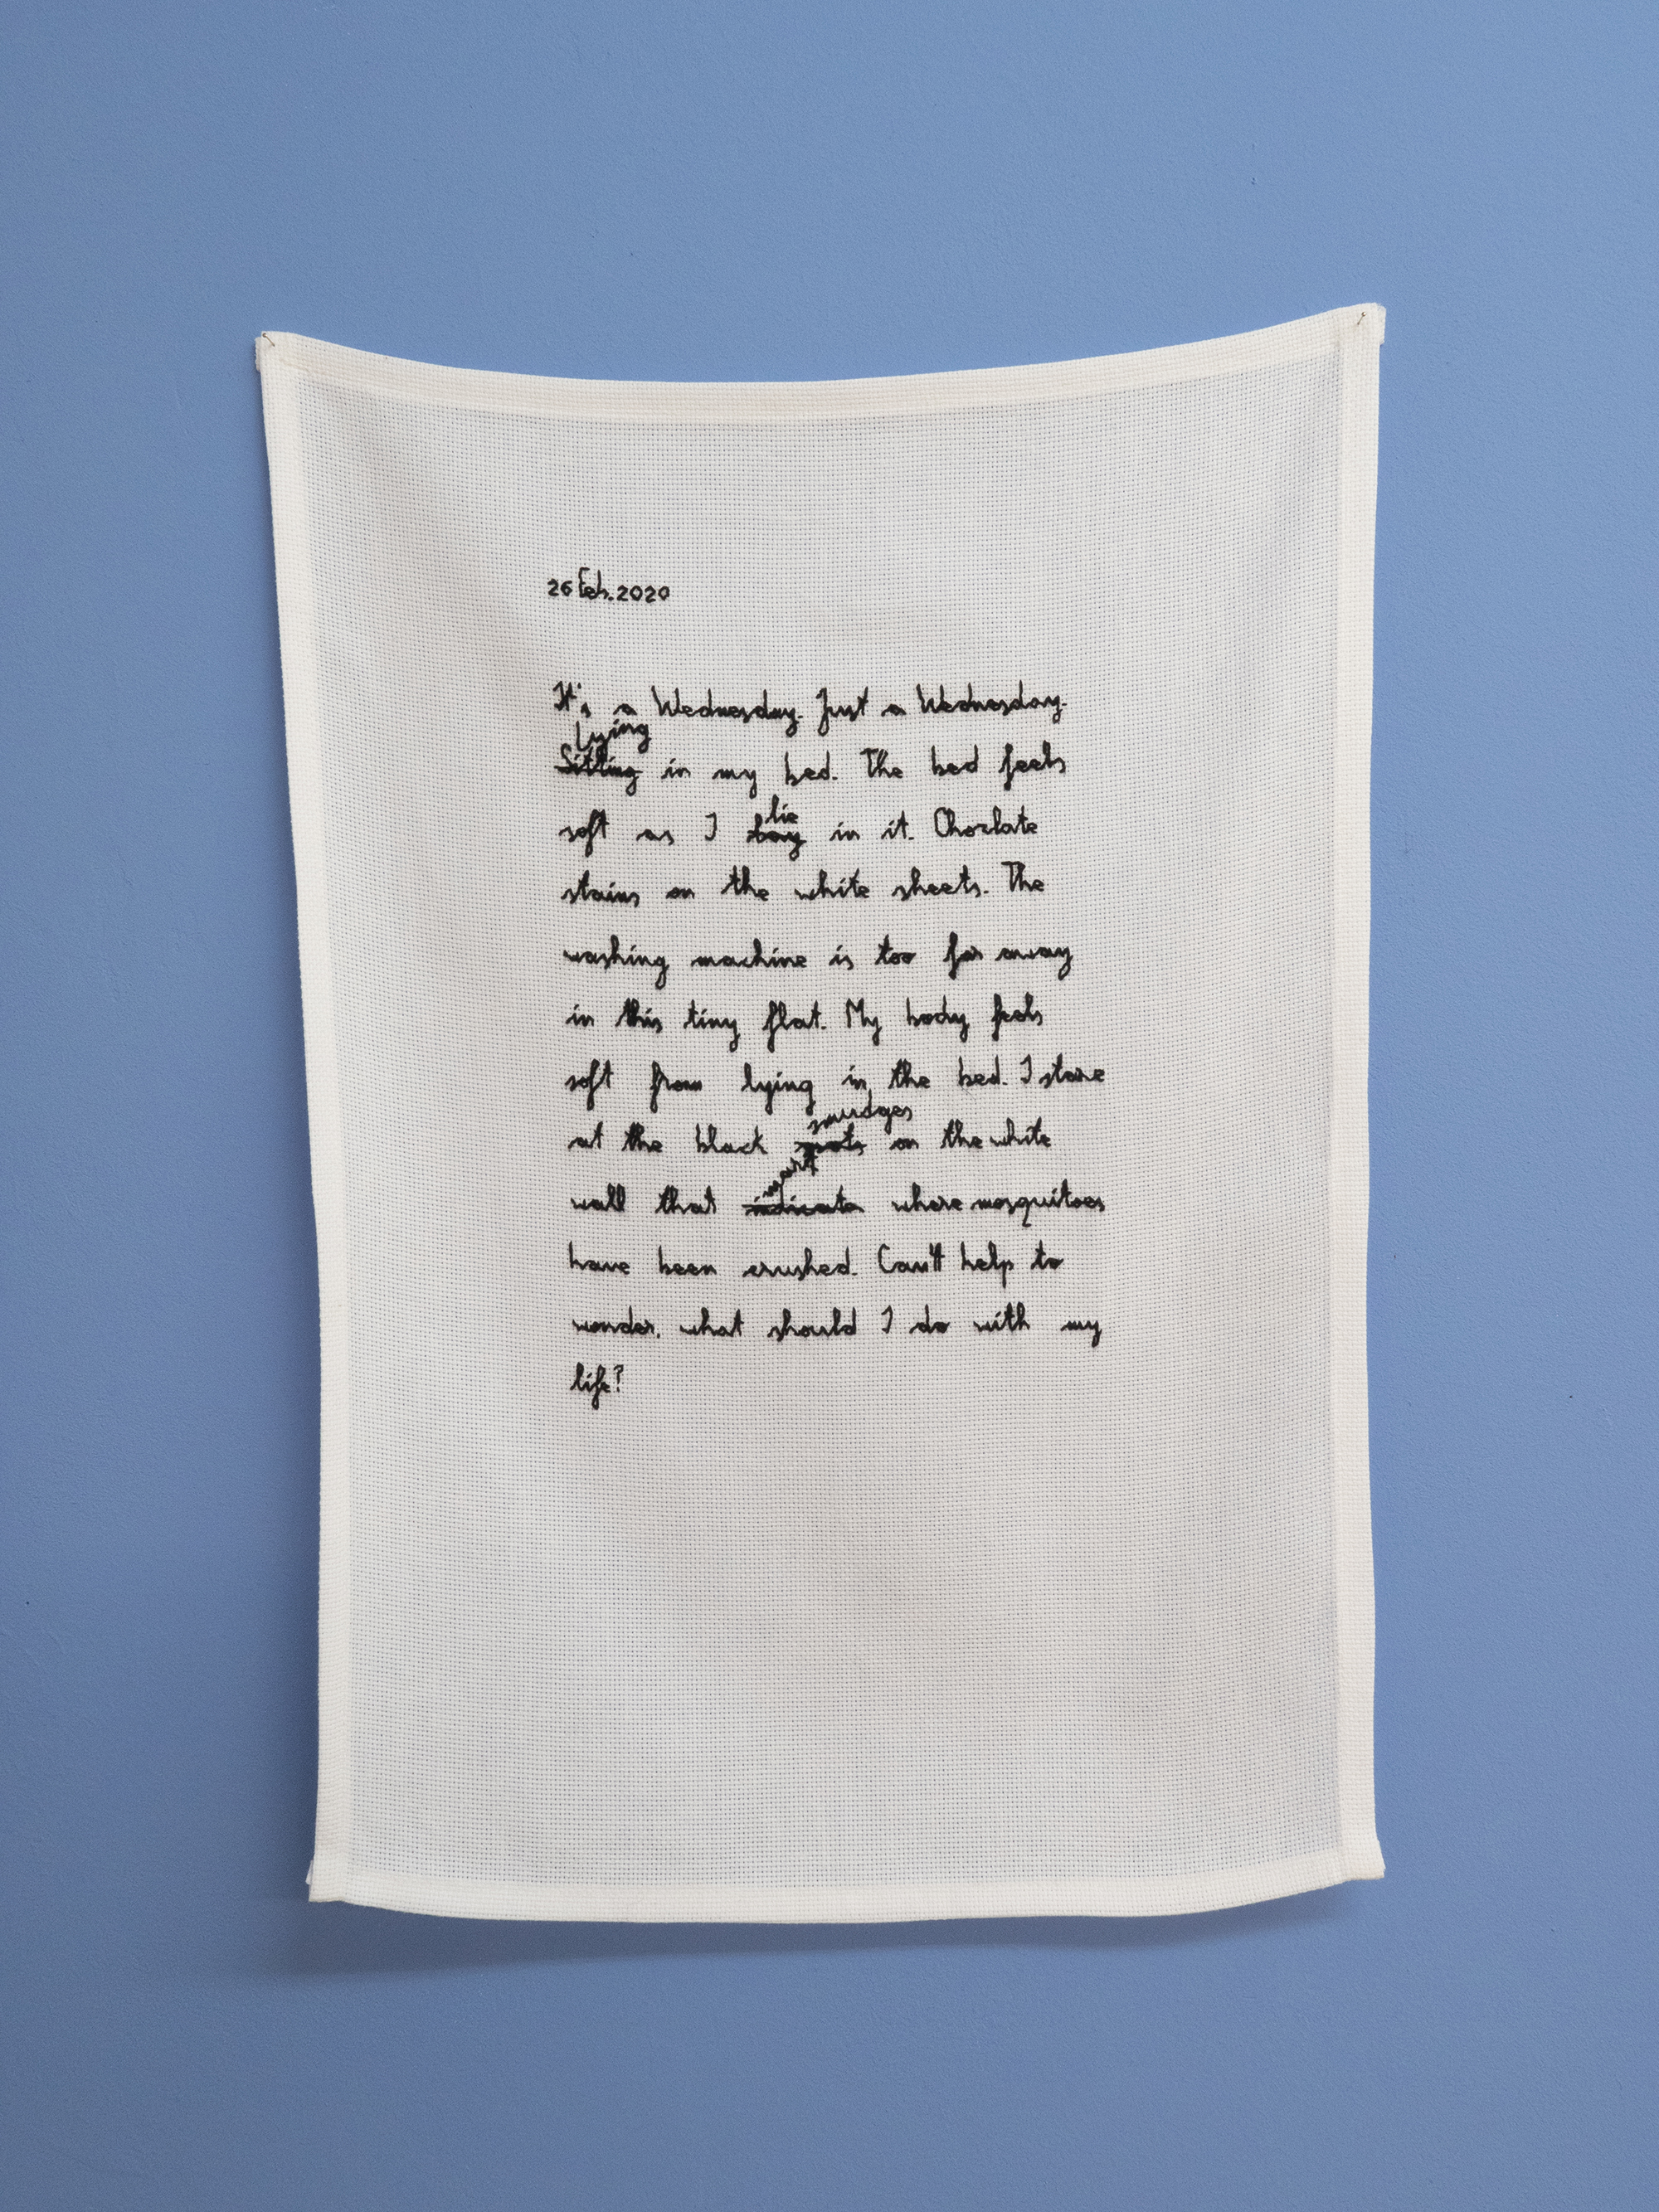 26 Feb. 2020
It's a Wednesday. Just a Wednesday.
Lying
Sitting in my bed. The bed feels
lie
soft as I lay in it. Choclate
stains on the white sheets. The
washing machine is too far away
in this tiny flat. My body feels
soft from lying in the bed. I stare
smudges
at the black spots on the white
wall that indicate where mosquitoes
have been crushed. Can't help to
wonder, what should I do with my
life?